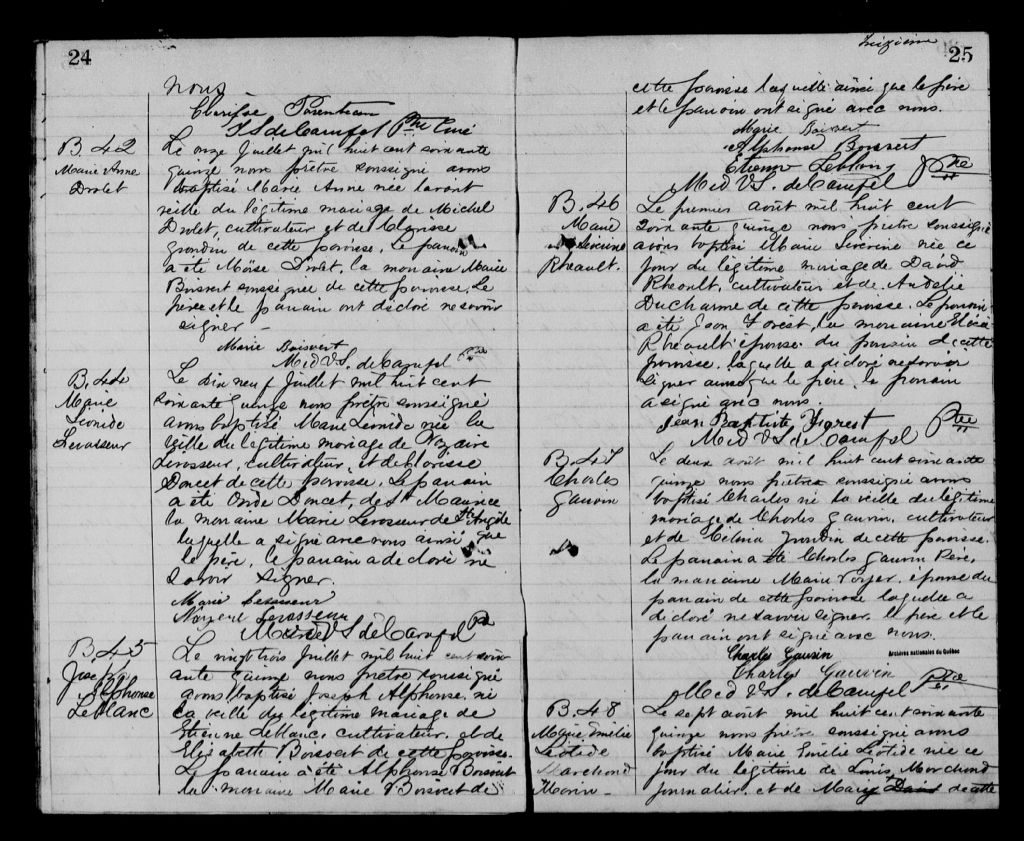 24
nous
Clarisse Parenteau
J S de Carufel Ptre Curé
B. 42
Marie Anne
Drolet
Le onze Juillet mil huit cent soixante
quinze nous prêtre soussigné avons
baptisé Marie Anne née l'avant
veille du légitime mariage de Michel
Drolet, cultivateur et de Clarisse
Grondin de cette paroisse. Le parrain
a été Moïse Drolet, la marraine Marie
Boisvert soussignée de cette paroisse. Le
père et le parrain ont déclaré ne savoir
signer
Marie Boisvert
Med V S. de Carufel Ptre
B. 44
Marie
Léonide
Levasseur
Le dix neuf Juillet mil huit cent
soixante quinze nous prêtre soussigné
avons baptisé Marie Léonide née la
veille du légitime mariage de
Levasseur, cultivateur, et de Clarisse
Doucet de cette paroisse. Le parrain
a été Doucet, de St Maurice
la marraine Marie Levasseur de Ste Angèle
laquelle a signé avec nous ainsi que
le père, le parrain a déclaré ne
savoir signer.
Marie Levasseur
Levasseur
Med V S de Carufel Ptre
B. 45
Joseph
Alphonse
Leblanc
Le vingt trois Juillet mil huit cent soix
ante quinze nous prêtre soussigné
avons baptisé Joseph Alphonse, né
la veille du légitime mariage de
Etienne Leblanc, cultivateur, et de
Elisabeth Boisvert de cette paroisse.
Le parrain a été Alphonse Boisvert
la marraine Marie Boisvert de
treizième
25
cette paroisse laquelle ainsi que le père
et le parrain ont signé avec nous.
Marie Boisvert
Alphonse Boisvert
Etienne Leblanc
Med V S. de Carufel Ptre
B. 46
Marie
Séverine
Rheault.
Le premier août mil huit cent
soixante quinze nous prêtre soussigné
avons baptisé Marie Séverine née ce
jour du légitime mariage de David
Rheault, cultivateur et de Aurélie
Ducharme de cette paroisse. Le parrain
a été Jean Forest, la marraine
Rheault épouse du parrain de cette
paroisse, laquelle a déclaré ne savoir
signer ainsi que le père, le parrain
a signé avec nous.
Jean Baptiste Forest
Med V S de Carufel Ptre
B. 47
Charles
Gauvin
Le deux août mil huit cent soixante
quinze nous prêtre soussigné avons
baptisé Charles né la veille du légitime
mariage de Charles Gauvin, cultivateur
et de Célina Grondin de cette paroisse.
Le parrain a été Charles Gauvin Père,
la marraine Marie épouse du
parrain de cette paroisse laquelle a
déclaré ne savoir signer, le père et le
parrain ont signé avec nous.
Charles Gauvin
Archives nationales du Québec
Charles Gauvin
Med V S. de Carufel Ptre
B. 48
Marie Emélie
Léotide
Marchand
Le sept août mil huit cent soixante
quinze nous prêtre soussigné avons
baptisé Marie Emélie Léotide née ce
jour du légitime de Louis Marchand
journalier, et de Mary de cette